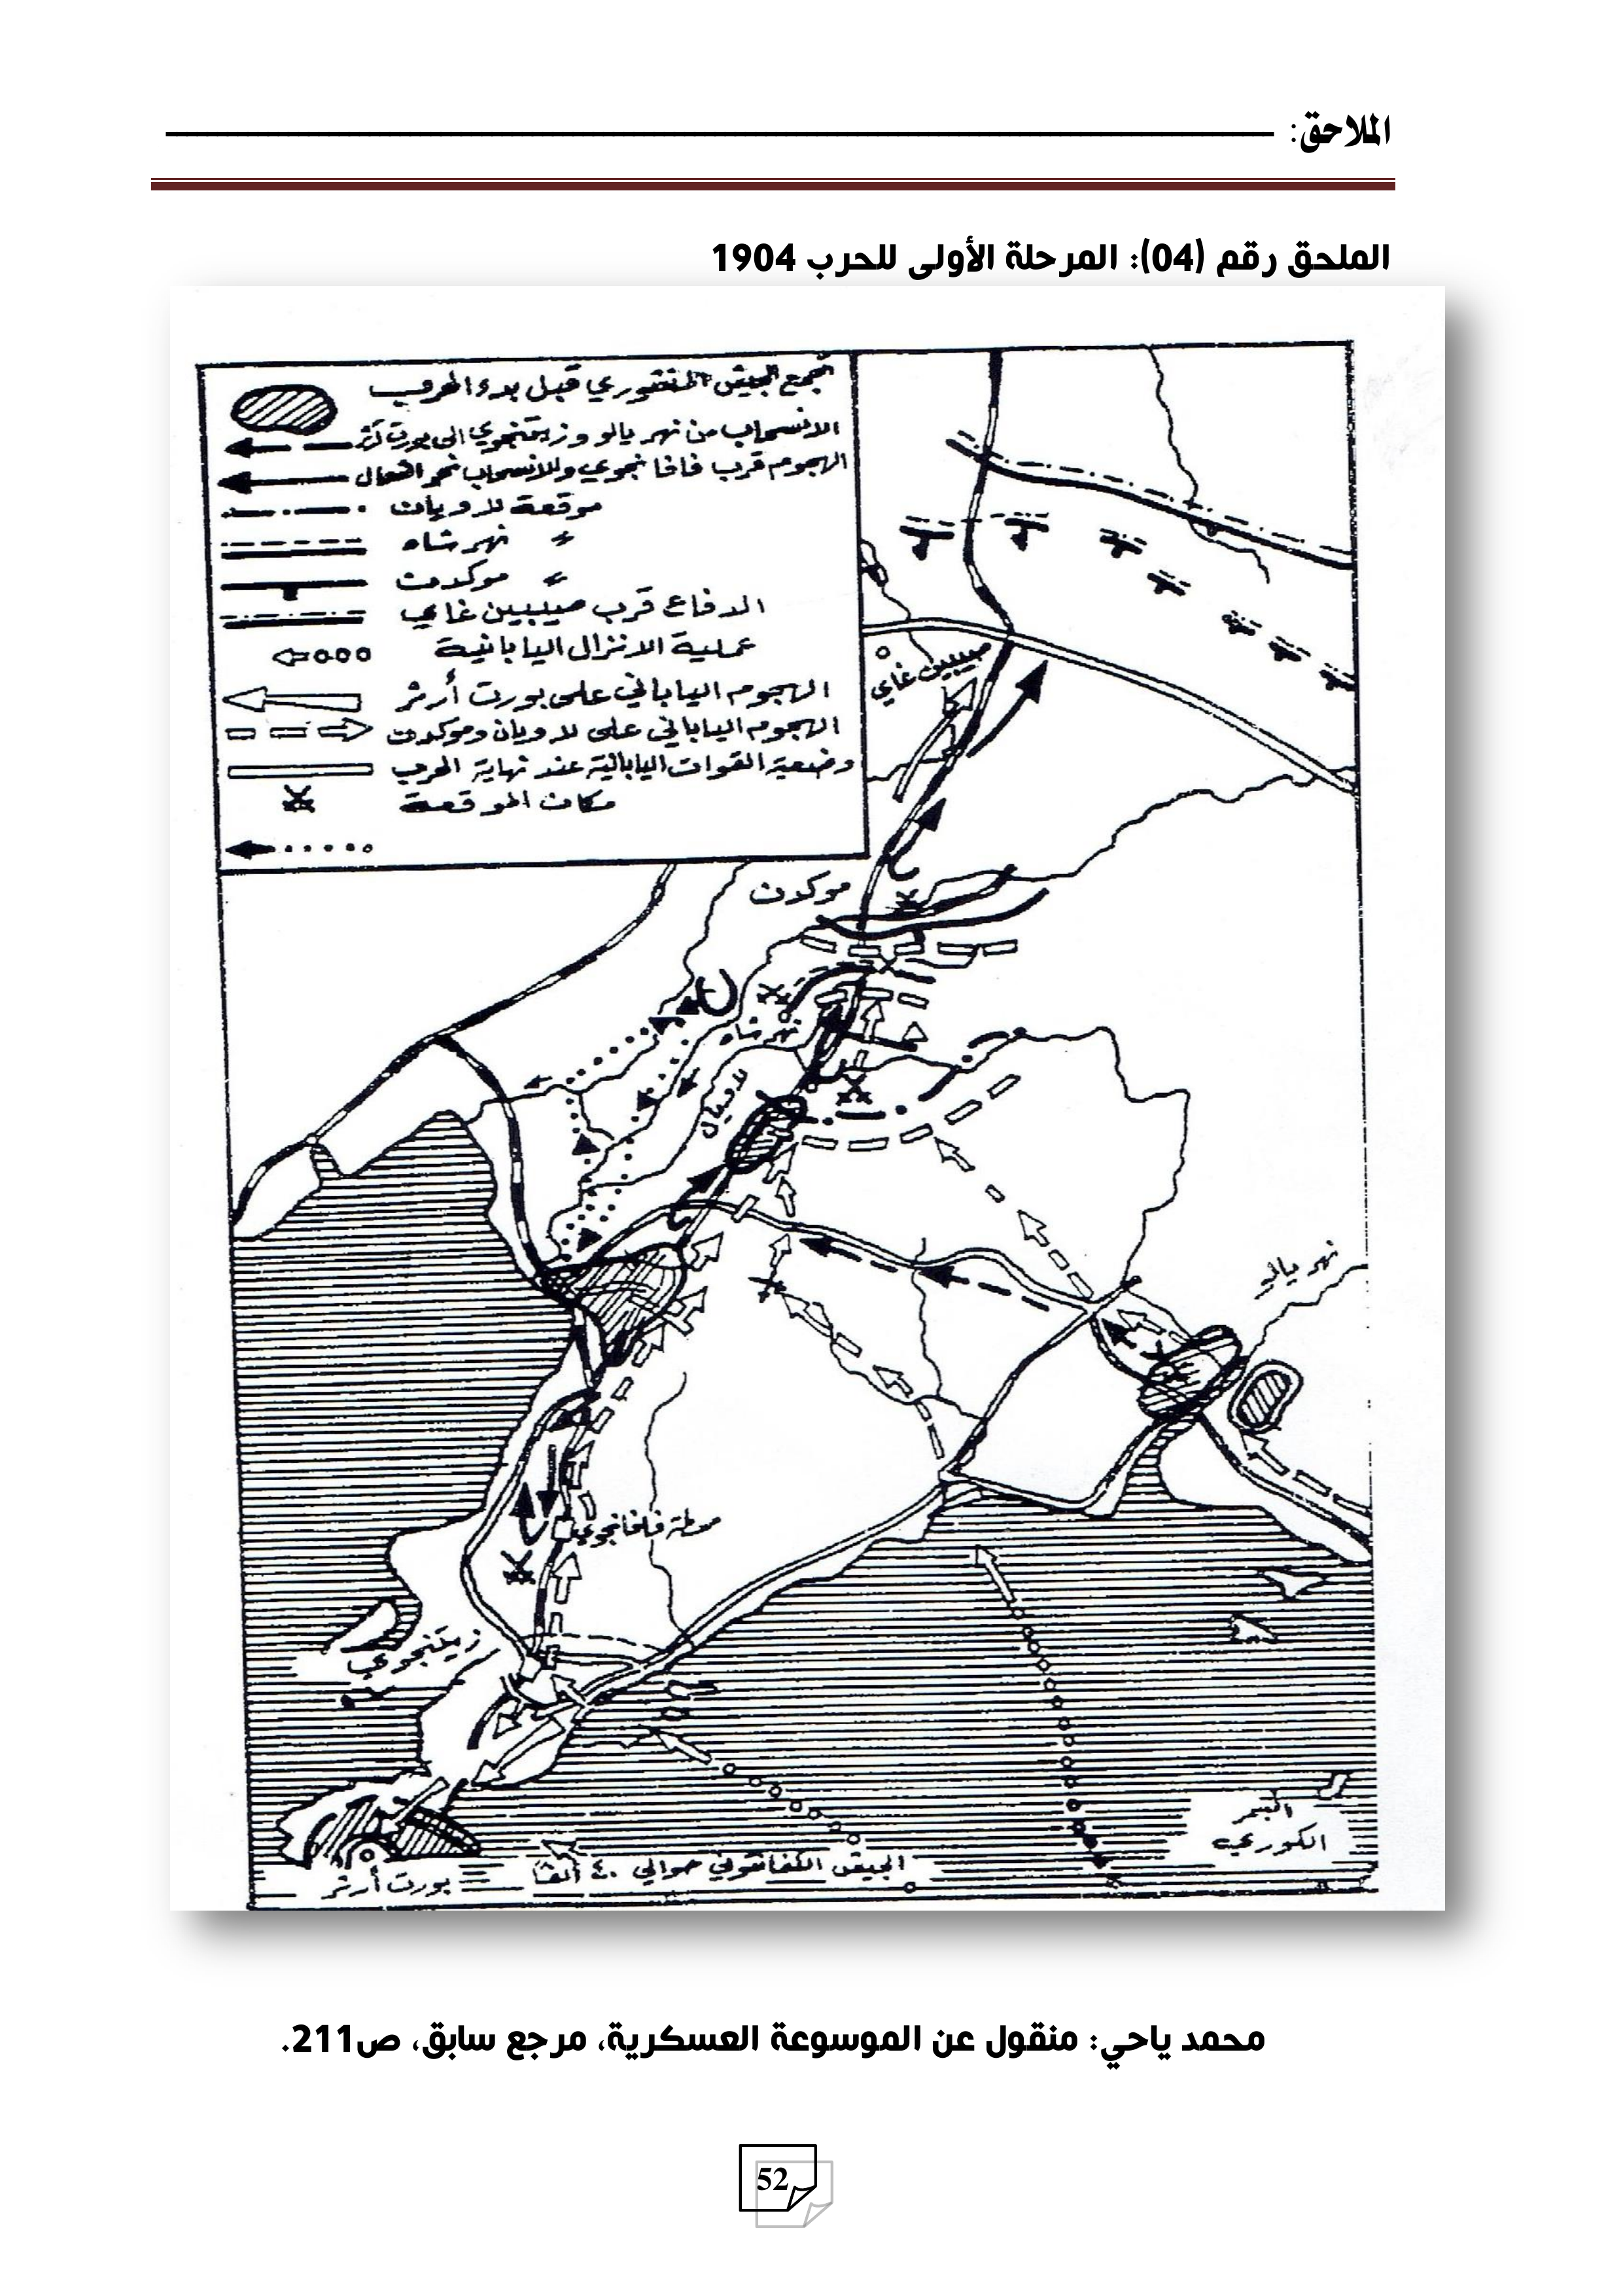 الملاحق:
الملحق رقم (04): المرحلة الأولى للحرب 1904
تجمع الجيش المنشوري قبل بدء الحرب
الانسحاب من نهر يالو وزيتنجوي الى بورت آرثر
الهجوم قرب فافا نجوي والانسحاب نحو الشمال
موقعة للاويان
〃 نهر شاه
〃 موكدن
الدفاع قرب صيبين غاي
عملية الانزال اليابانية
الهجوم الياباني على بورت أرثر
الهجوم الياباني على لاويان وموكدن
وضعية القوات اليابانية عند نهاية الحرب
مكان الموقعة
صيبين غاي
موكدن
نهر شاه
لاويان
نهر يالي
محطة فافا نجوي
زيتنجوي
البحر
الكوري
الجيش الكفانتوني حوالي ٤٠ ألفا
بورت أرثر
محمد ياحي: منقول عن الموسوعة العسكرية، مرجع سابق، ص211.
52